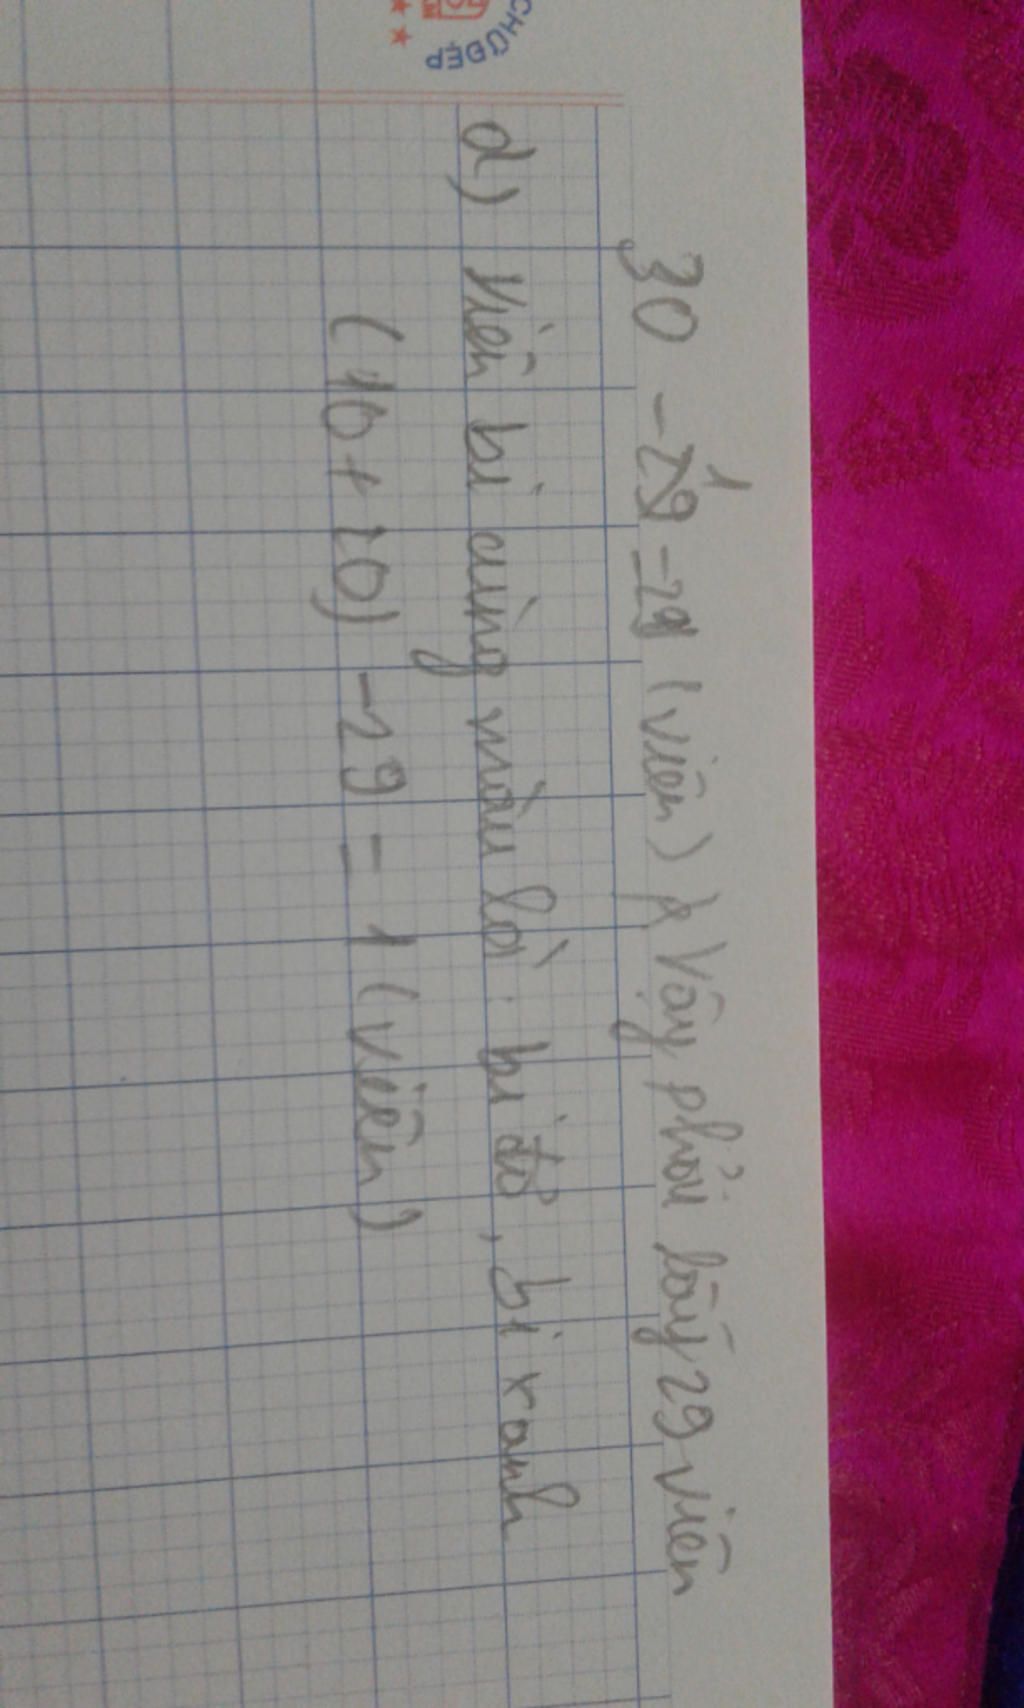 CHỮ ĐẸP
30 - 1 = 29 (viên) Vậy phải lấy 29 viên
d) Viên bi cùng màu là: bi đỏ, bi xanh
(10 + 20) - 29 = 1 (viên)